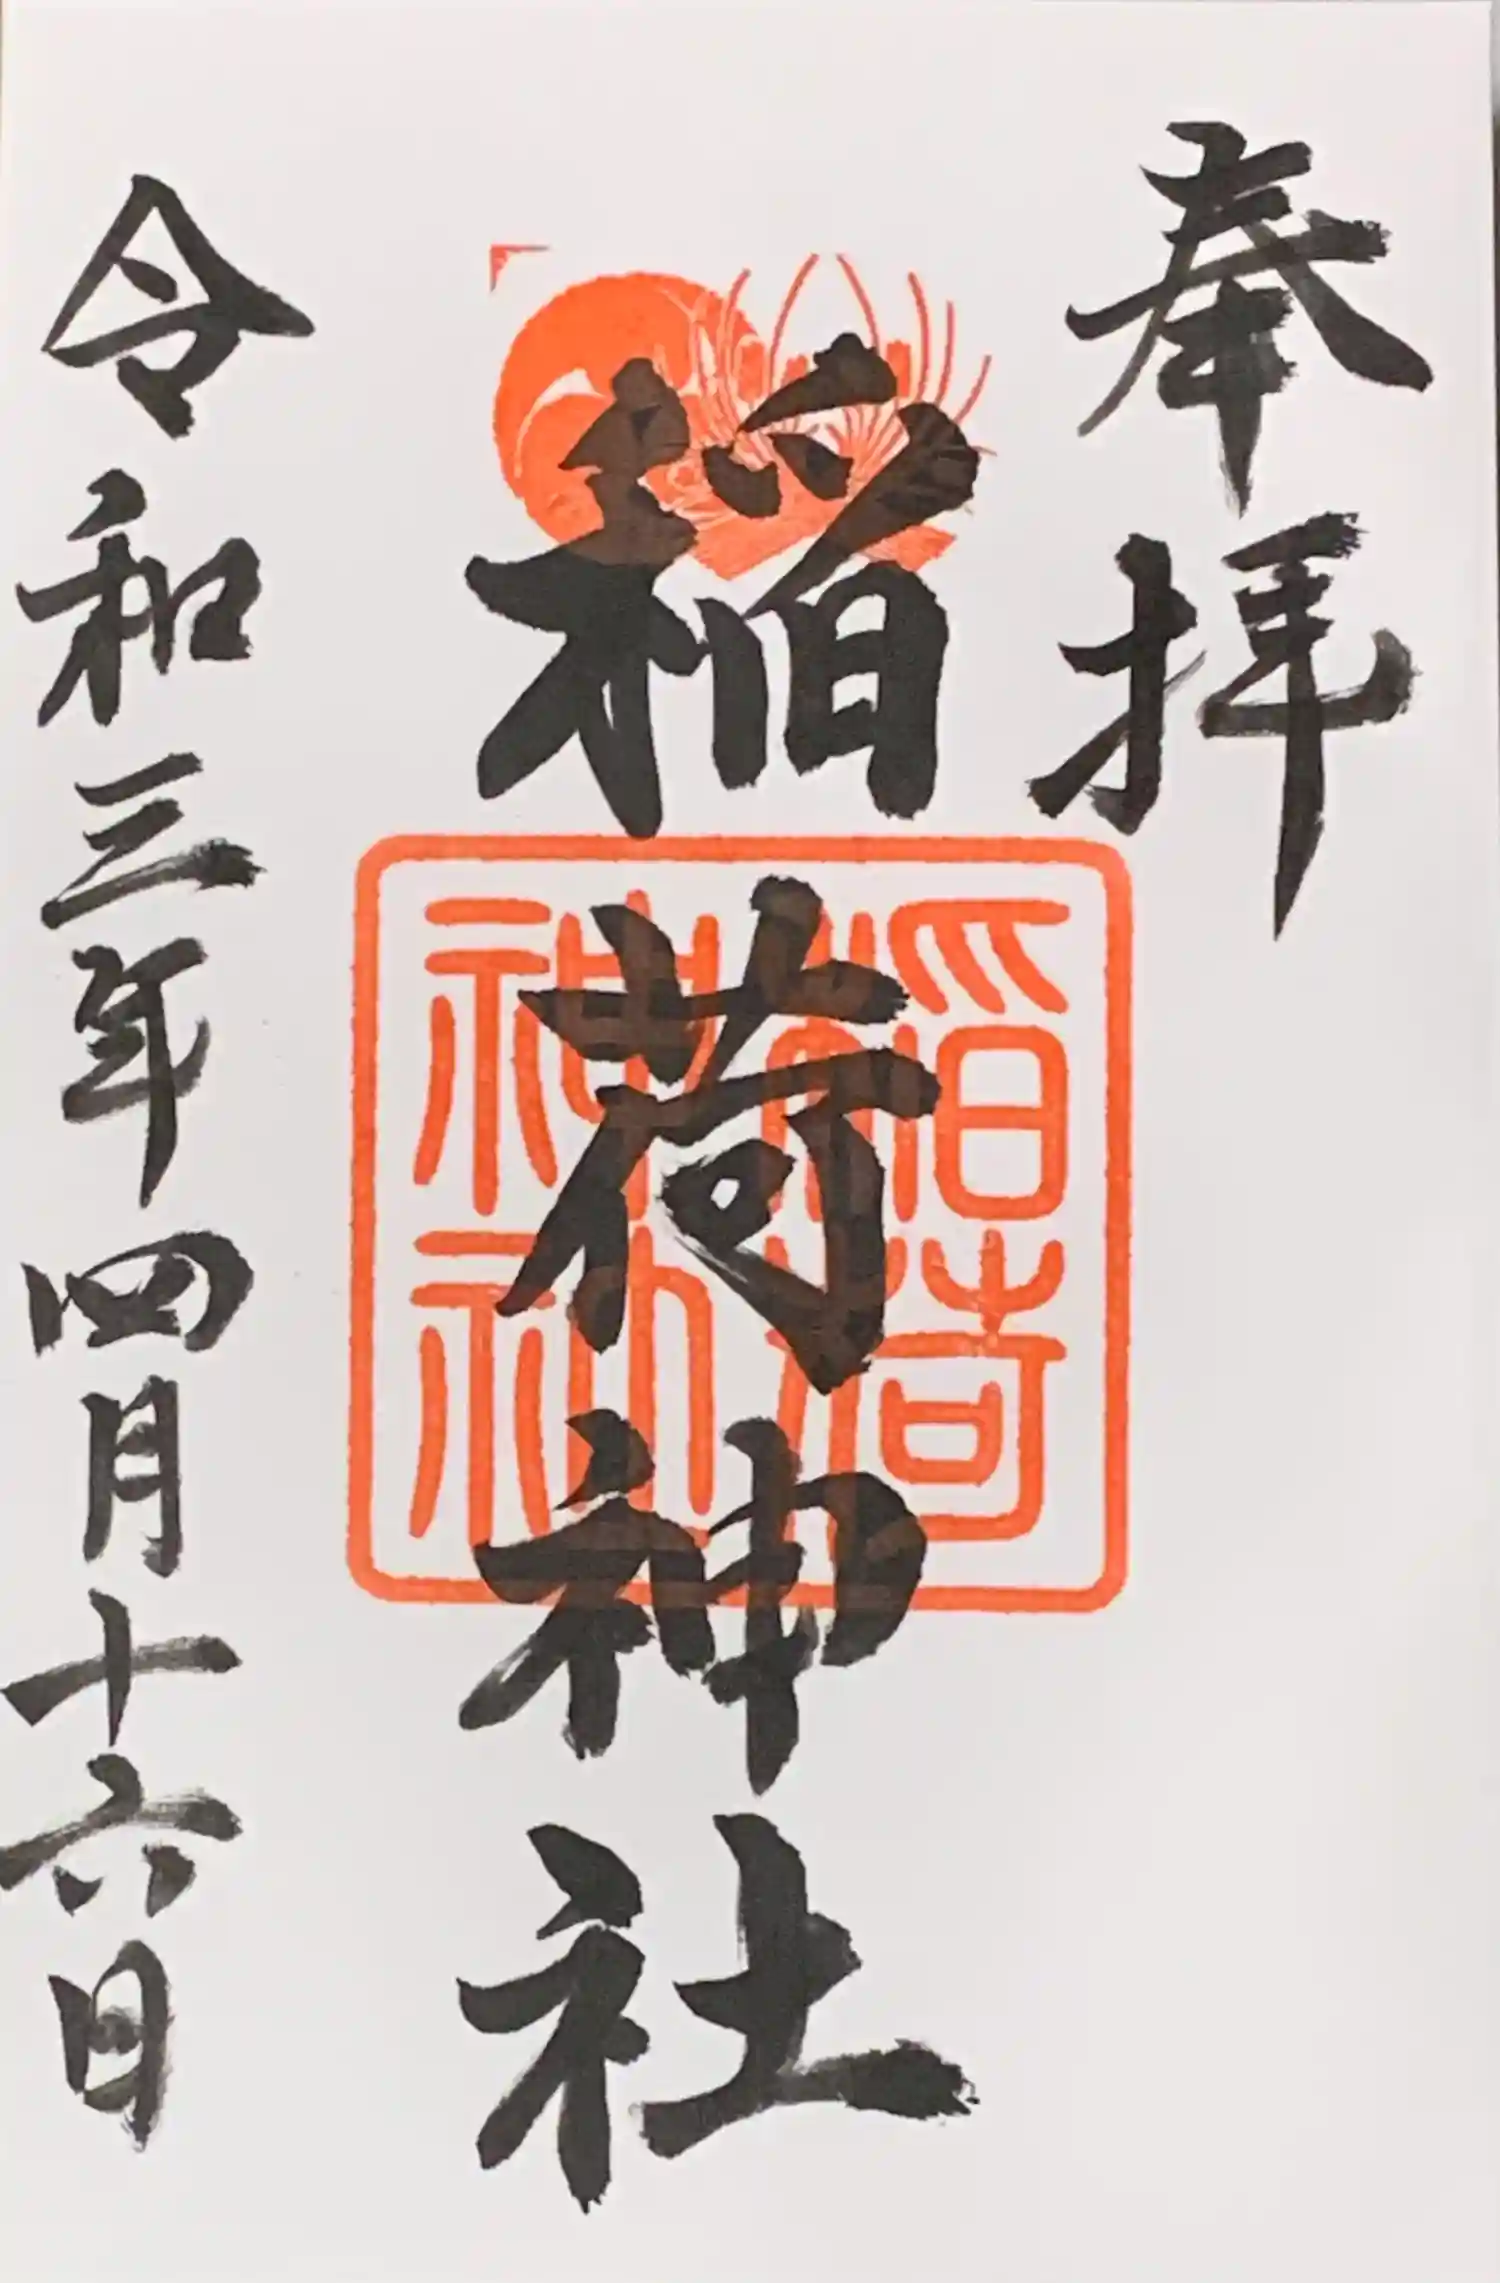 奉拝
稲荷神社
稲荷
神社
令和三年四月十六日